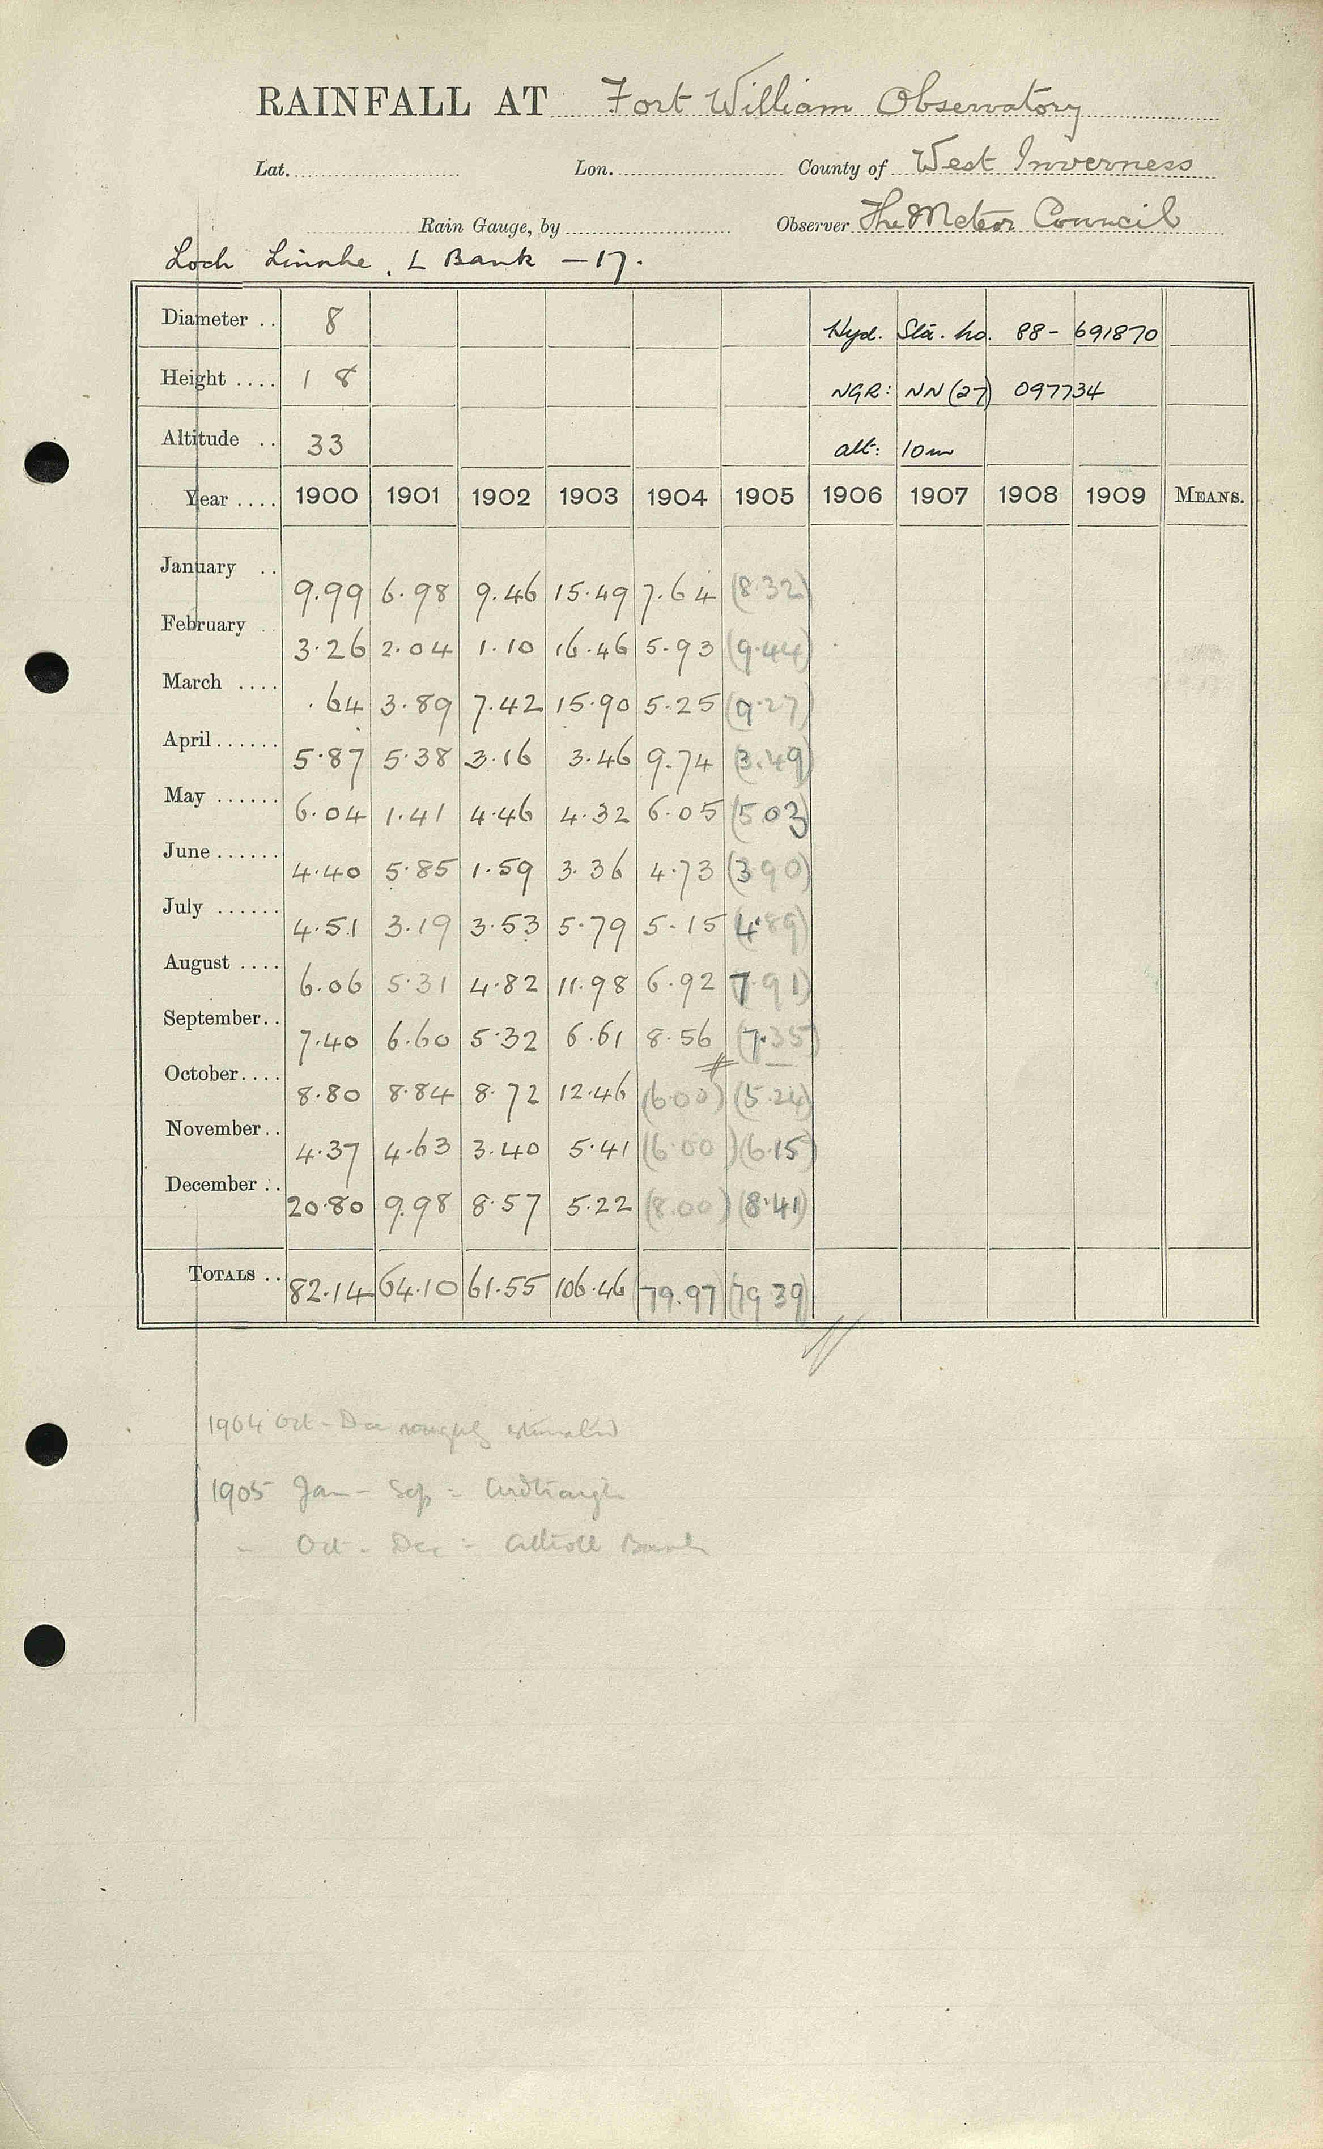 RAINFALL AT Fort William Observatory
Lat. Lon. County of West Inverness
Rain Gauge, by Observer The Meteor Council
Loch Linnhe, L Bank - 17.
Diameter .. 8 Hyd. Sta. no. 88- 691870
Height .... 1 8 NGR: NN (27) 097734
Altitude .. 33 alt: 10m
Year .... 1900 1901 1902 1903 1904 1905 1906 1907 1908 1909 MEANS.
January .. 9.99 6.98 9.46 15.49 7.64 (8.32)
February . 3.26 2.04 1.10 16.46 5.93 (9.44)
March .... .64 3.89 7.42 15.90 5.25 (9.27)
April ...... 5.87 5.38 3.16 3.46 9.74 (3.49)
May ...... 6.04 1.41 4.46 4.32 6.05 (5 03)
June ...... 4.40 5.85 1.59 3.36 4.73 (3 90)
July ...... 4.51 3.19 3.53 5.79 5.15 (4.89)
August .... 6.06 5.31 4.82 11.98 6.92 (7.91)
September.. 7.40 6.60 5.32 6.61 8.56 (7.35)
October.... 8.80 8.84 8.72 12.46 (6.00) (5.24)
November.. 4.37 4.63 3.40 5.41 (6.00) (6.15)
December .. 20.80 9.98 8.57 5.22 (8.00) (8.41)
TOTALS .. 82.14 64.10 61.55 106.46 (79.97) (79.39)
1904 Oct - Dec roughly estimated
1905 Jan - Sep = Ardtraigh
" Oct - Dec = Bank